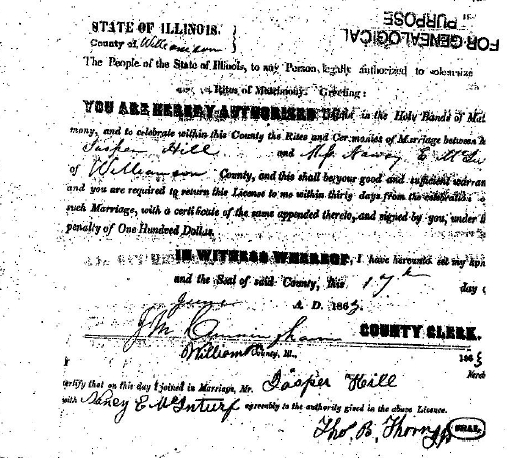 STATE OF ILLINOIS,
County of Williamson
FOR GENEALOGICAL
PURPOSE
The People of the State of Illinois, to any Person, legally authorized to solemnize
Rites of Matrimony, Greeting:
YOU ARE HEREBY AUTHORIZED in the Holy Bands of Mat
mony, and to celebrate within this County the Rites and Ceremonies of Marriage between
Jasper Hill and Mrs Nancy E
of Williamson County, and this shall be your good and sufficient warran
and you are required to return this License to me within thirty days from the celebration
such Marriage, with a certificate of the same appended thereto, and signed by you, under
penalty of One Hundred Dollars.
IN WITNESS WHEREOF, I have hereunto set my
and the Seal of said County, this 17th day
June A. D. 1863.
J M Cunningham COUNTY CLERK.
Williamson County, Ill., 1863
ertify that on this day I joined in Marriage, Mr. Jasper Hill
with Nancy E McInturf agreeably to the authority given in the above License.
Tho. B. Thorn
SEAL